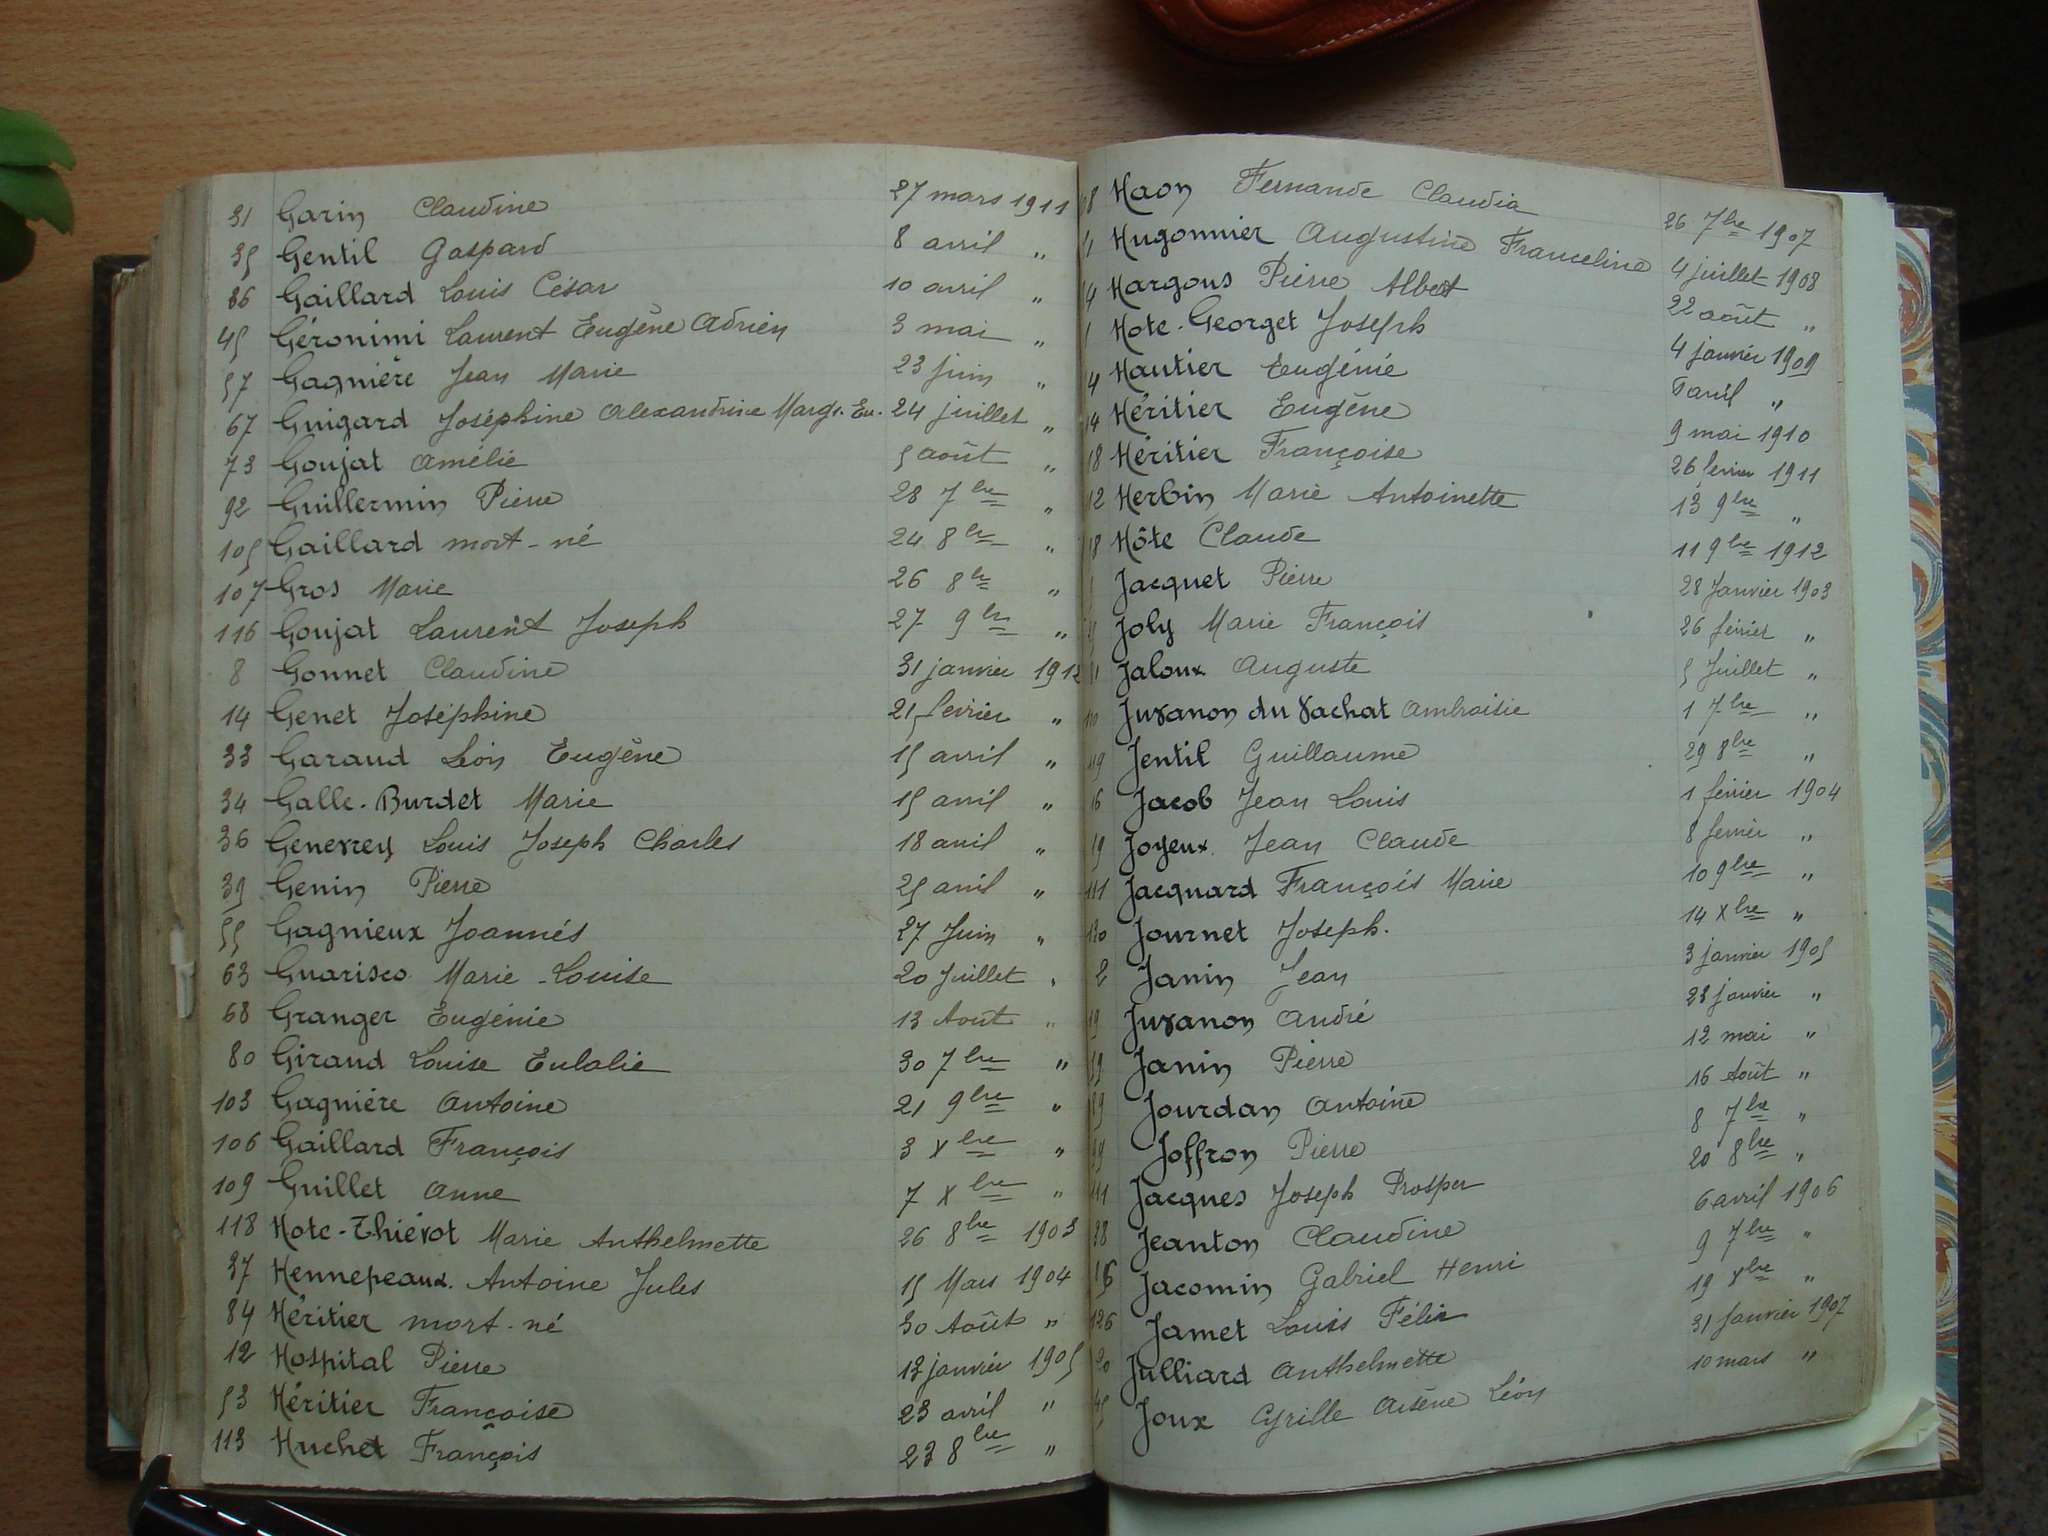 31 Garin Claudine 27 mars 1911
35 Gentil Gaspard 8 avril "
36 Gaillard Louis César 10 avril "
45 Géronimi Laurent Eugène Adrien 3 mai "
57 Gagnière Jean Marie 23 juin "
67 Guigard Joséphine Alexandrine Margr. Eu. 24 juillet "
73 Goujat Amélie 5 août "
92 Guillermin Pierre 28 7bre "
105 Gaillard mort-né 24 8bre "
107 Gros Marie 26 8bre "
116 Goujat Laurent Joseph 27 9bre "
8 Gonnet Claudine 31 janvier 1912
14 Genet Joséphine 25 fevrier "
33 Garaud Léon Eugène 15 avril "
34 Galle-Burdet Marie 15 avril "
36 Genevrey Louis Joseph Charles 18 avril "
39 Genin Pierre 25 avril "
55 Gagnieux Joannés 27 Juin "
63 Guarisco Marie-Louise 20 Juillet "
68 Granger Eugénie 13 Août "
80 Giraud Louise Eulalie 30 7bre "
103 Gagnière Antoine 21 9bre "
106 Gaillard François 3 Xbre "
109 Guillet Anne 7 Xbre "
118 Hote-Thiévot Marie Anthelmette 26 8bre 1903
37 Hennepeaux. Antoine Jules 15 Mars 1904
84 Héritier mort-né 30 Août "
12 Hospital Pierre 13 janvier 1905
53 Héritier Françoise 23 avril "
113 Huchet François 23 8bre "
8 Haon Fernande Claudia 26 7bre 1907
Hugonnier Augustine Franceline 4 juillet 1908
4 Hargous Pierre Albert 22 août "
Hote-Georget Joseph 4 janvier 1909
4 Hautier Eugénie avril "
14 Héritier Eugène 9 mai 1910
18 Héritier Françoise 26 fevrier 1911
12 Herbin Marie Antoinette 13 9bre "
18 Hôte Claude 11 9bre 1912
Jacquet Pierre 28 Janvier 1903
Joly Marie François 26 février "
Jaloux Auguste 5 Juillet "
Juvanon du Vachat Ambroisie 1 7bre "
19 Jentil Guillaume 29 8bre "
16 Jacob Jean Louis 1 février 1904
19 Joyeux Jean Claude 8 fevrier "
111 Jacquard François Marie 10 9bre "
120 Journet Joseph. 14 Xbre "
2 Janin Jean 3 janvier 1905
19 Juvanon André 23 janvier "
Janin Pierre 12 mai "
Jourdan Antoine 16 Août "
Joffron Pierre 8 7bre "
111 Jacques Joseph Prosper 20 8bre "
Jeanton Claudine 6 avril 1906
Jacomin Gabriel Henri 9 7bre "
126 Jamet Louis Félix 19 Xbre "
20 Julliard Anthelmette 31 Janvier 1907
Joux Cyrille Arsène Léon 10 mars "